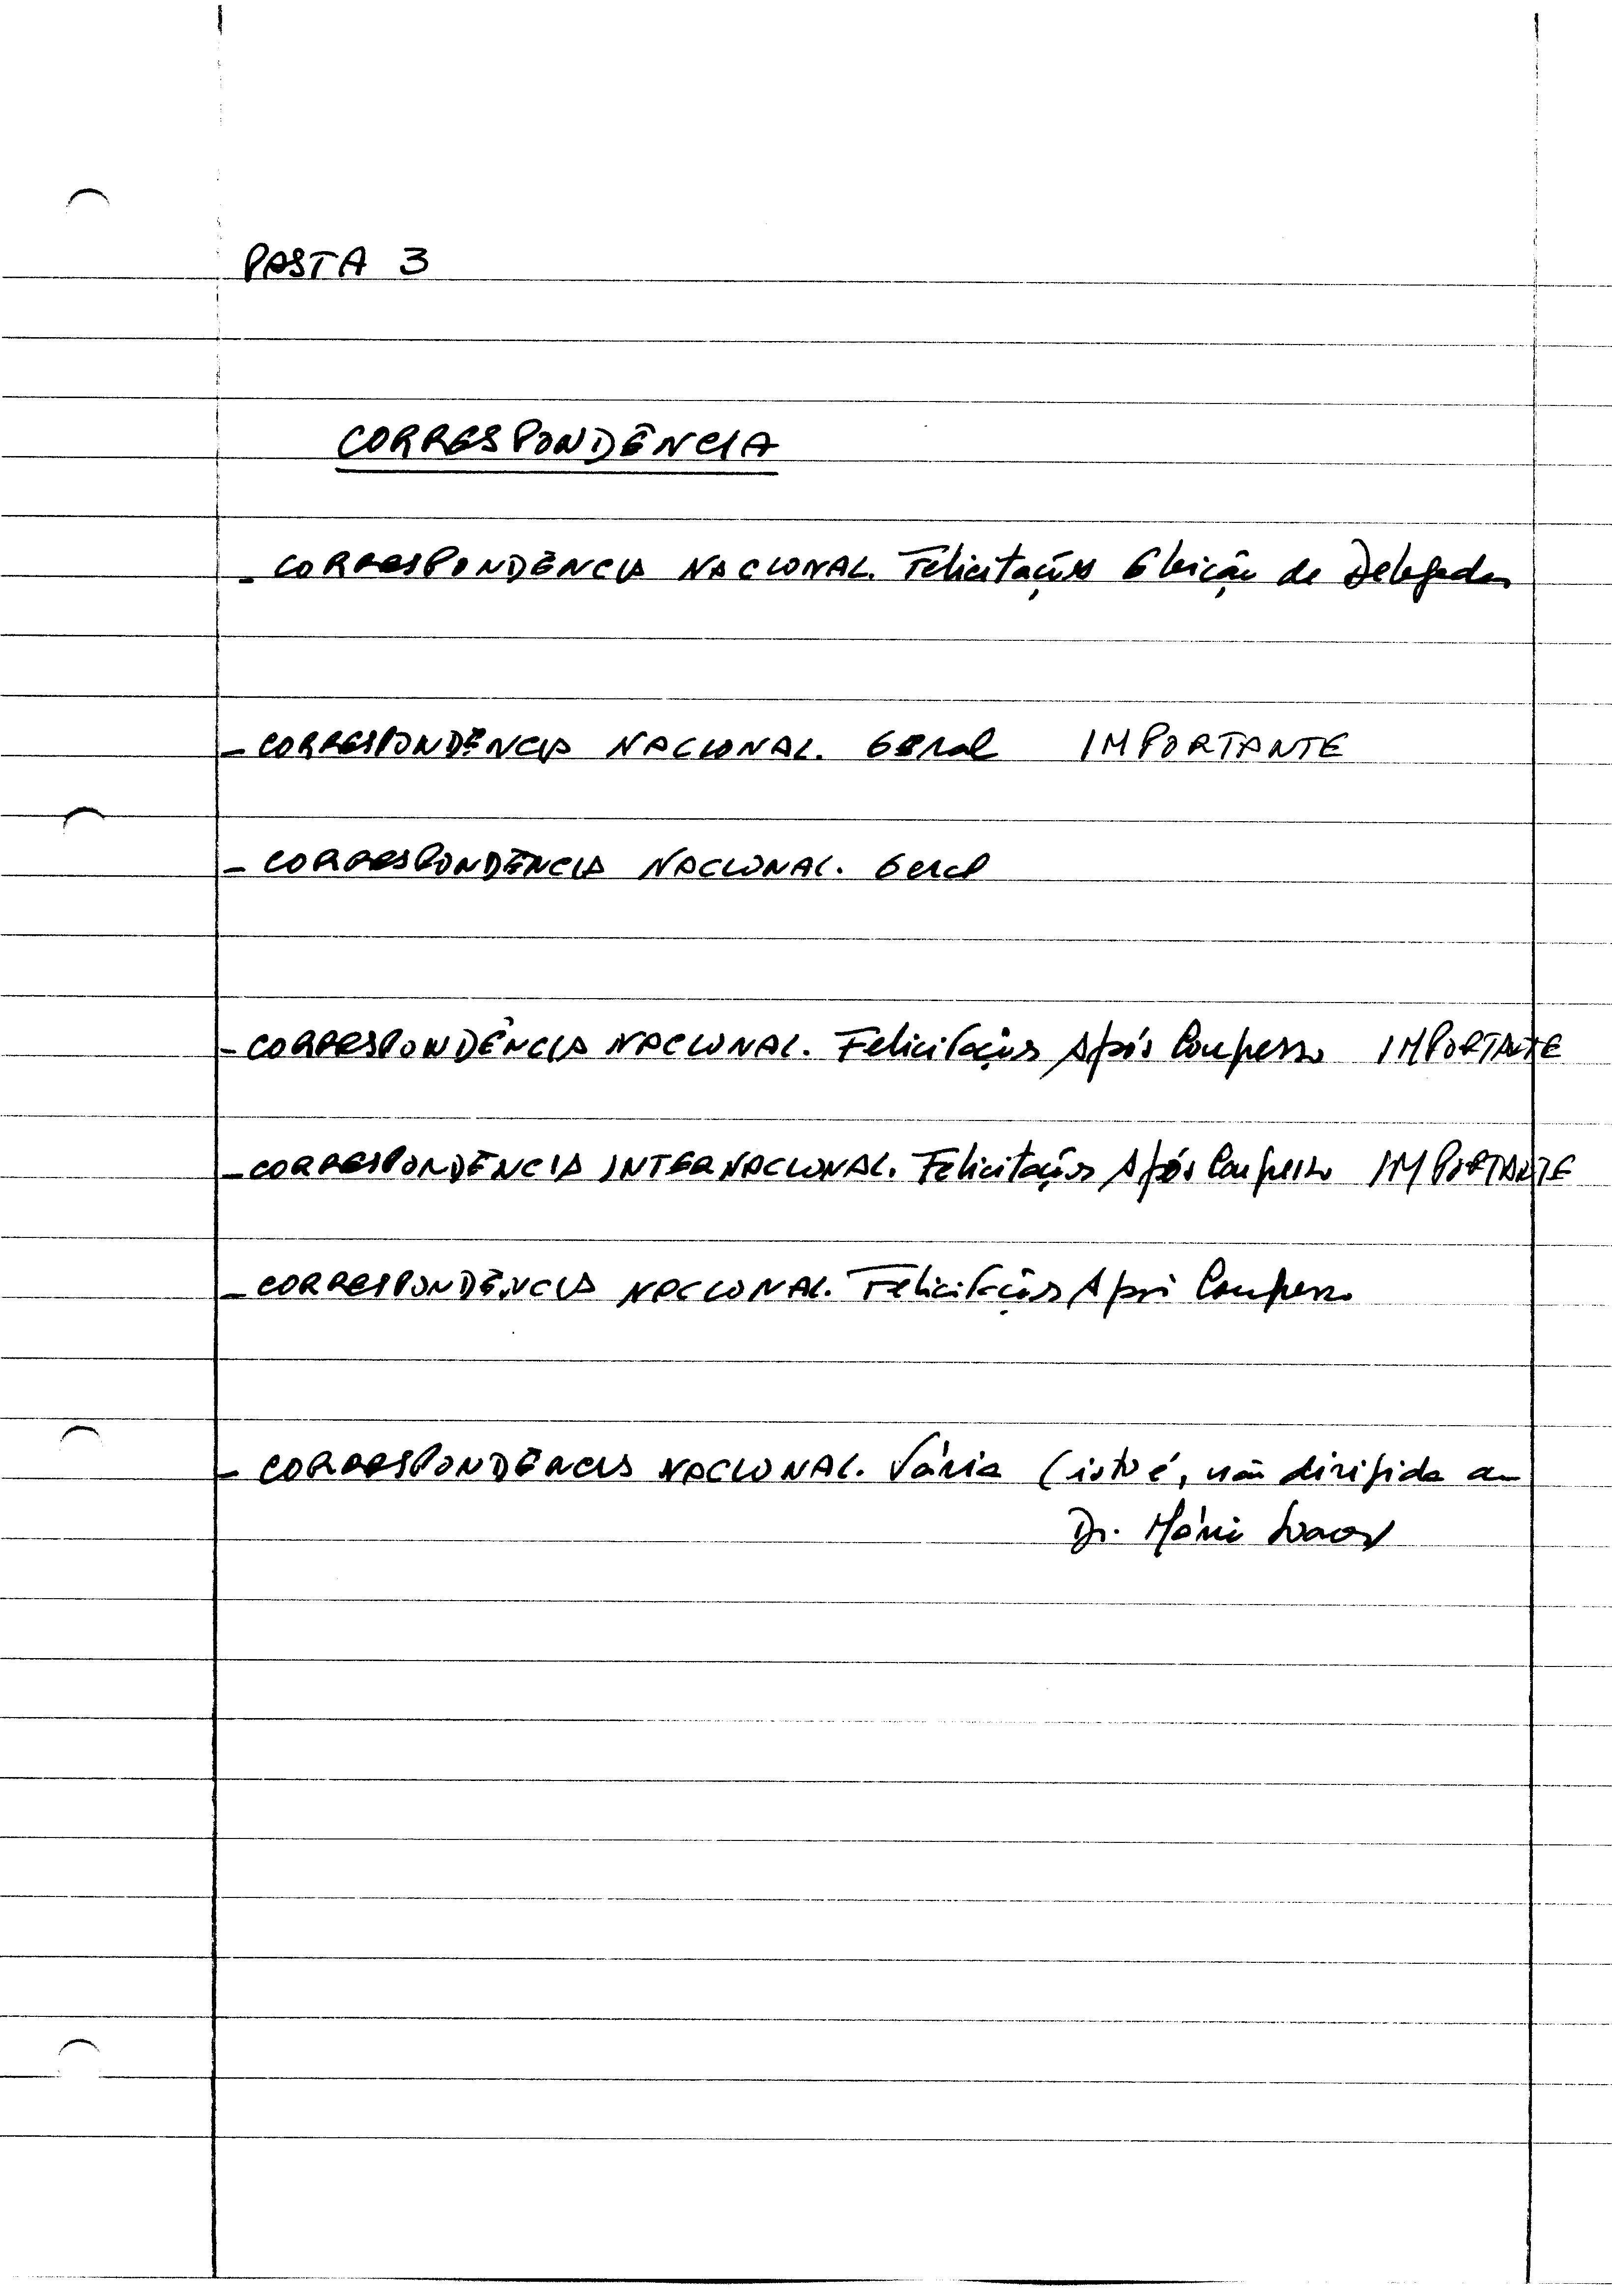 PASTA 3
CORRESPONDÊNCIA
- CORRESPONDÊNCIA NACIONAL. Felicitações Eleição de Delegados
- CORRESPONDÊNCIA NACIONAL. Geral IMPORTANTE
- CORRESPONDÊNCIA NACIONAL. Geral
- CORRESPONDÊNCIA NACIONAL. Felicitações Após Congresso IMPORTANTE
- CORRESPONDÊNCIA INTERNACIONAL. Felicitações Após Congresso IMPORTANTE
- CORRESPONDÊNCIA NACIONAL. Felicitações Após Congresso
- CORRESPONDÊNCIA NACIONAL. Vária (isto é, não dirigida ao
Dr. Mário Soares